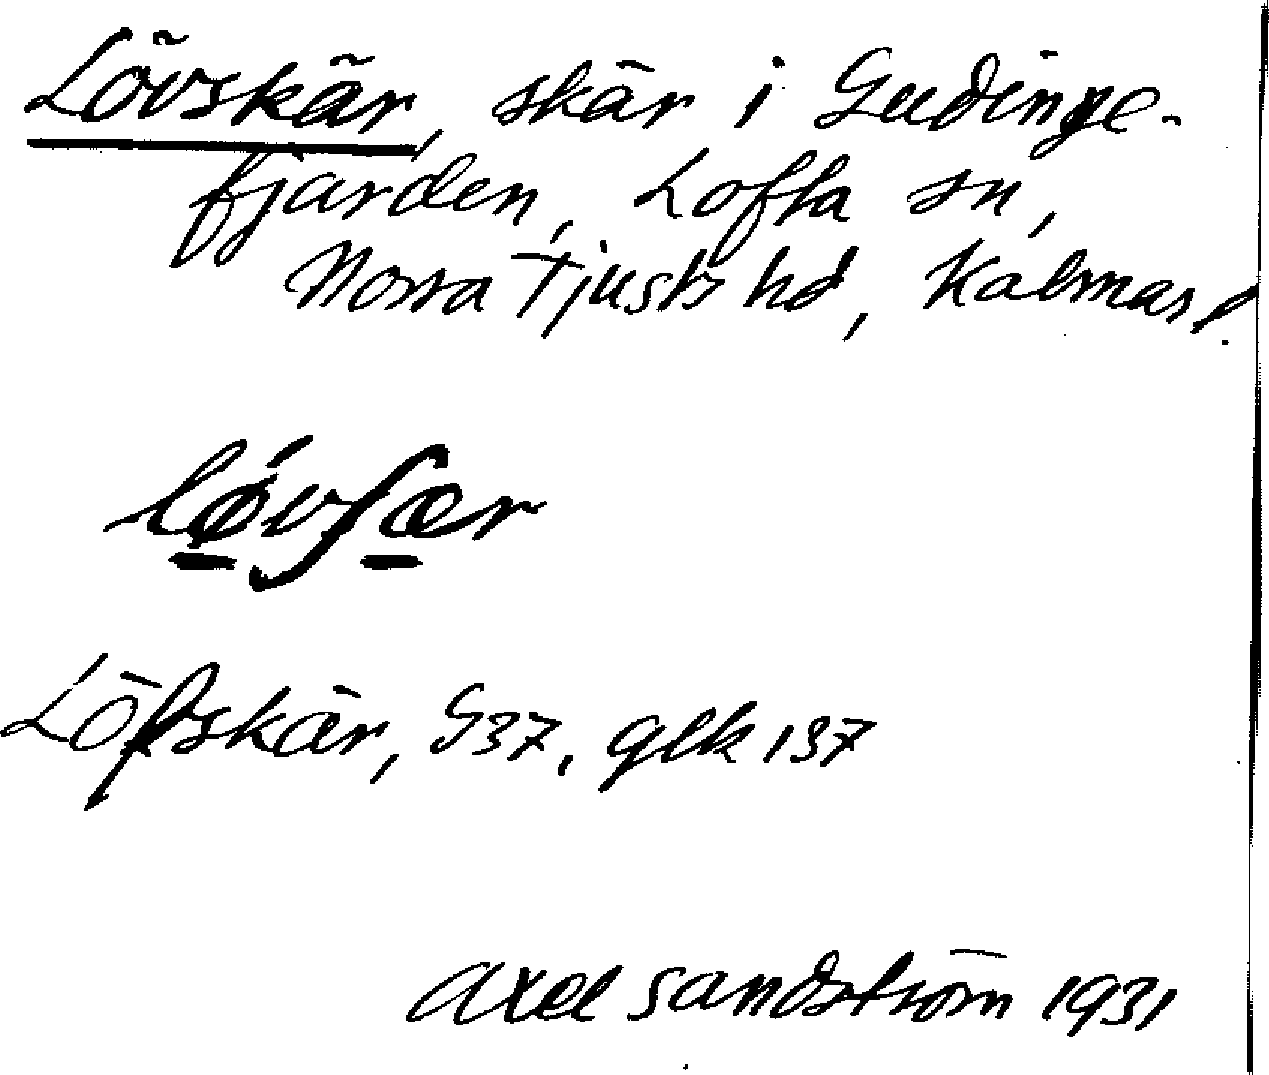 Lövskär, skär i Gudinge-
fjärden, Lofta sn,
Norra Tjusts hd, Kalmar l.
løvʃær
Löfskär, G37, glk 137
Axel Sandström 1931